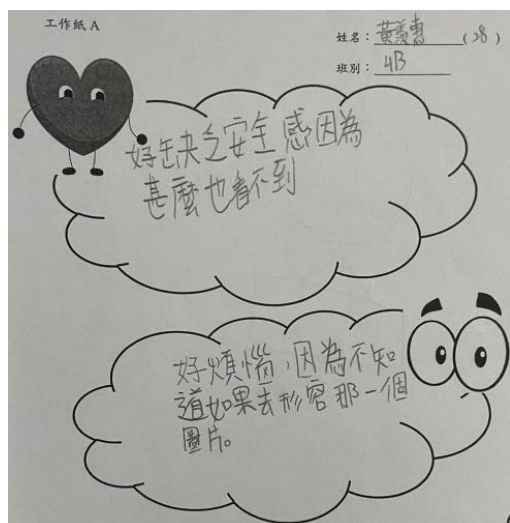 工作紙 A
姓名：黃羨惠(28)
班別：4B
好缺乏安全感因為
甚麼也看不到
好煩惱，因為不知
道如果去形容那一個
圖片。